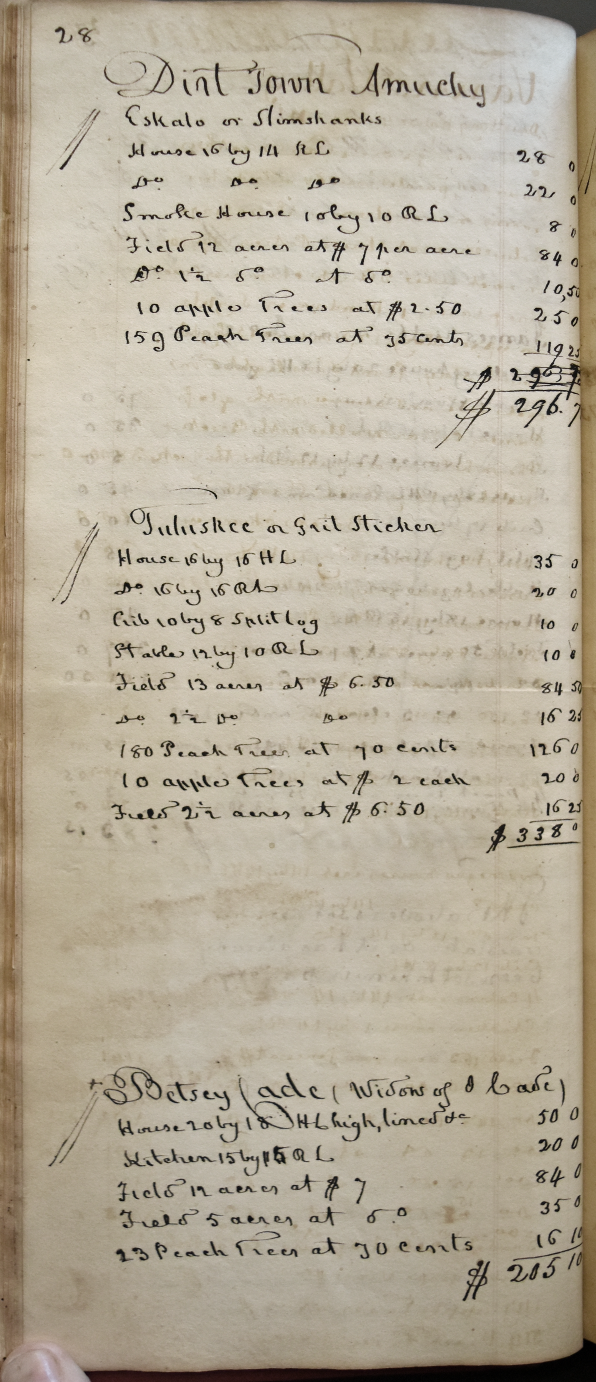 28
Dirt Town Amuchy
Eskalo or Slimshanks
House 16 by 14 RL 28 0
Do Do Do 22 0
Smoke House 10 by 10 RL 8 0
Field 12 acres at $ 7 per acre 84 0
Do 1½ do at do 10,50
10 apple Trees at $2.50 25 0
159 Peach Trees at 75 cents 119 25
$
$ 296.7
Tuluskee or Grit Sticker
House 16 by 16 HL 35 0
Do 16 by 16 RL 20 0
Crib 10 by 8 Split log 10 0
Stable 12 by 10 RL 10 0
Field 13 acres at $ 6.50 84 50
Do 2½ Do Do 16 25
180 Peach Trees at 70 cents 126 0
10 apple Trees at $ 2 each 20 0
Field 2½ acres at $ 6.50 16 25
$ 338 0
Betsey Cade (Widow of J Cade)
House 20 by 18 HL high, lined &c 50 0
Kitchen 15 by 15 RL 20 0
Field 12 acres at $ 7 84 0
Field 5 acres at do 35 0
23 Peach Trees at 70 cents 16 10
$ 205 10